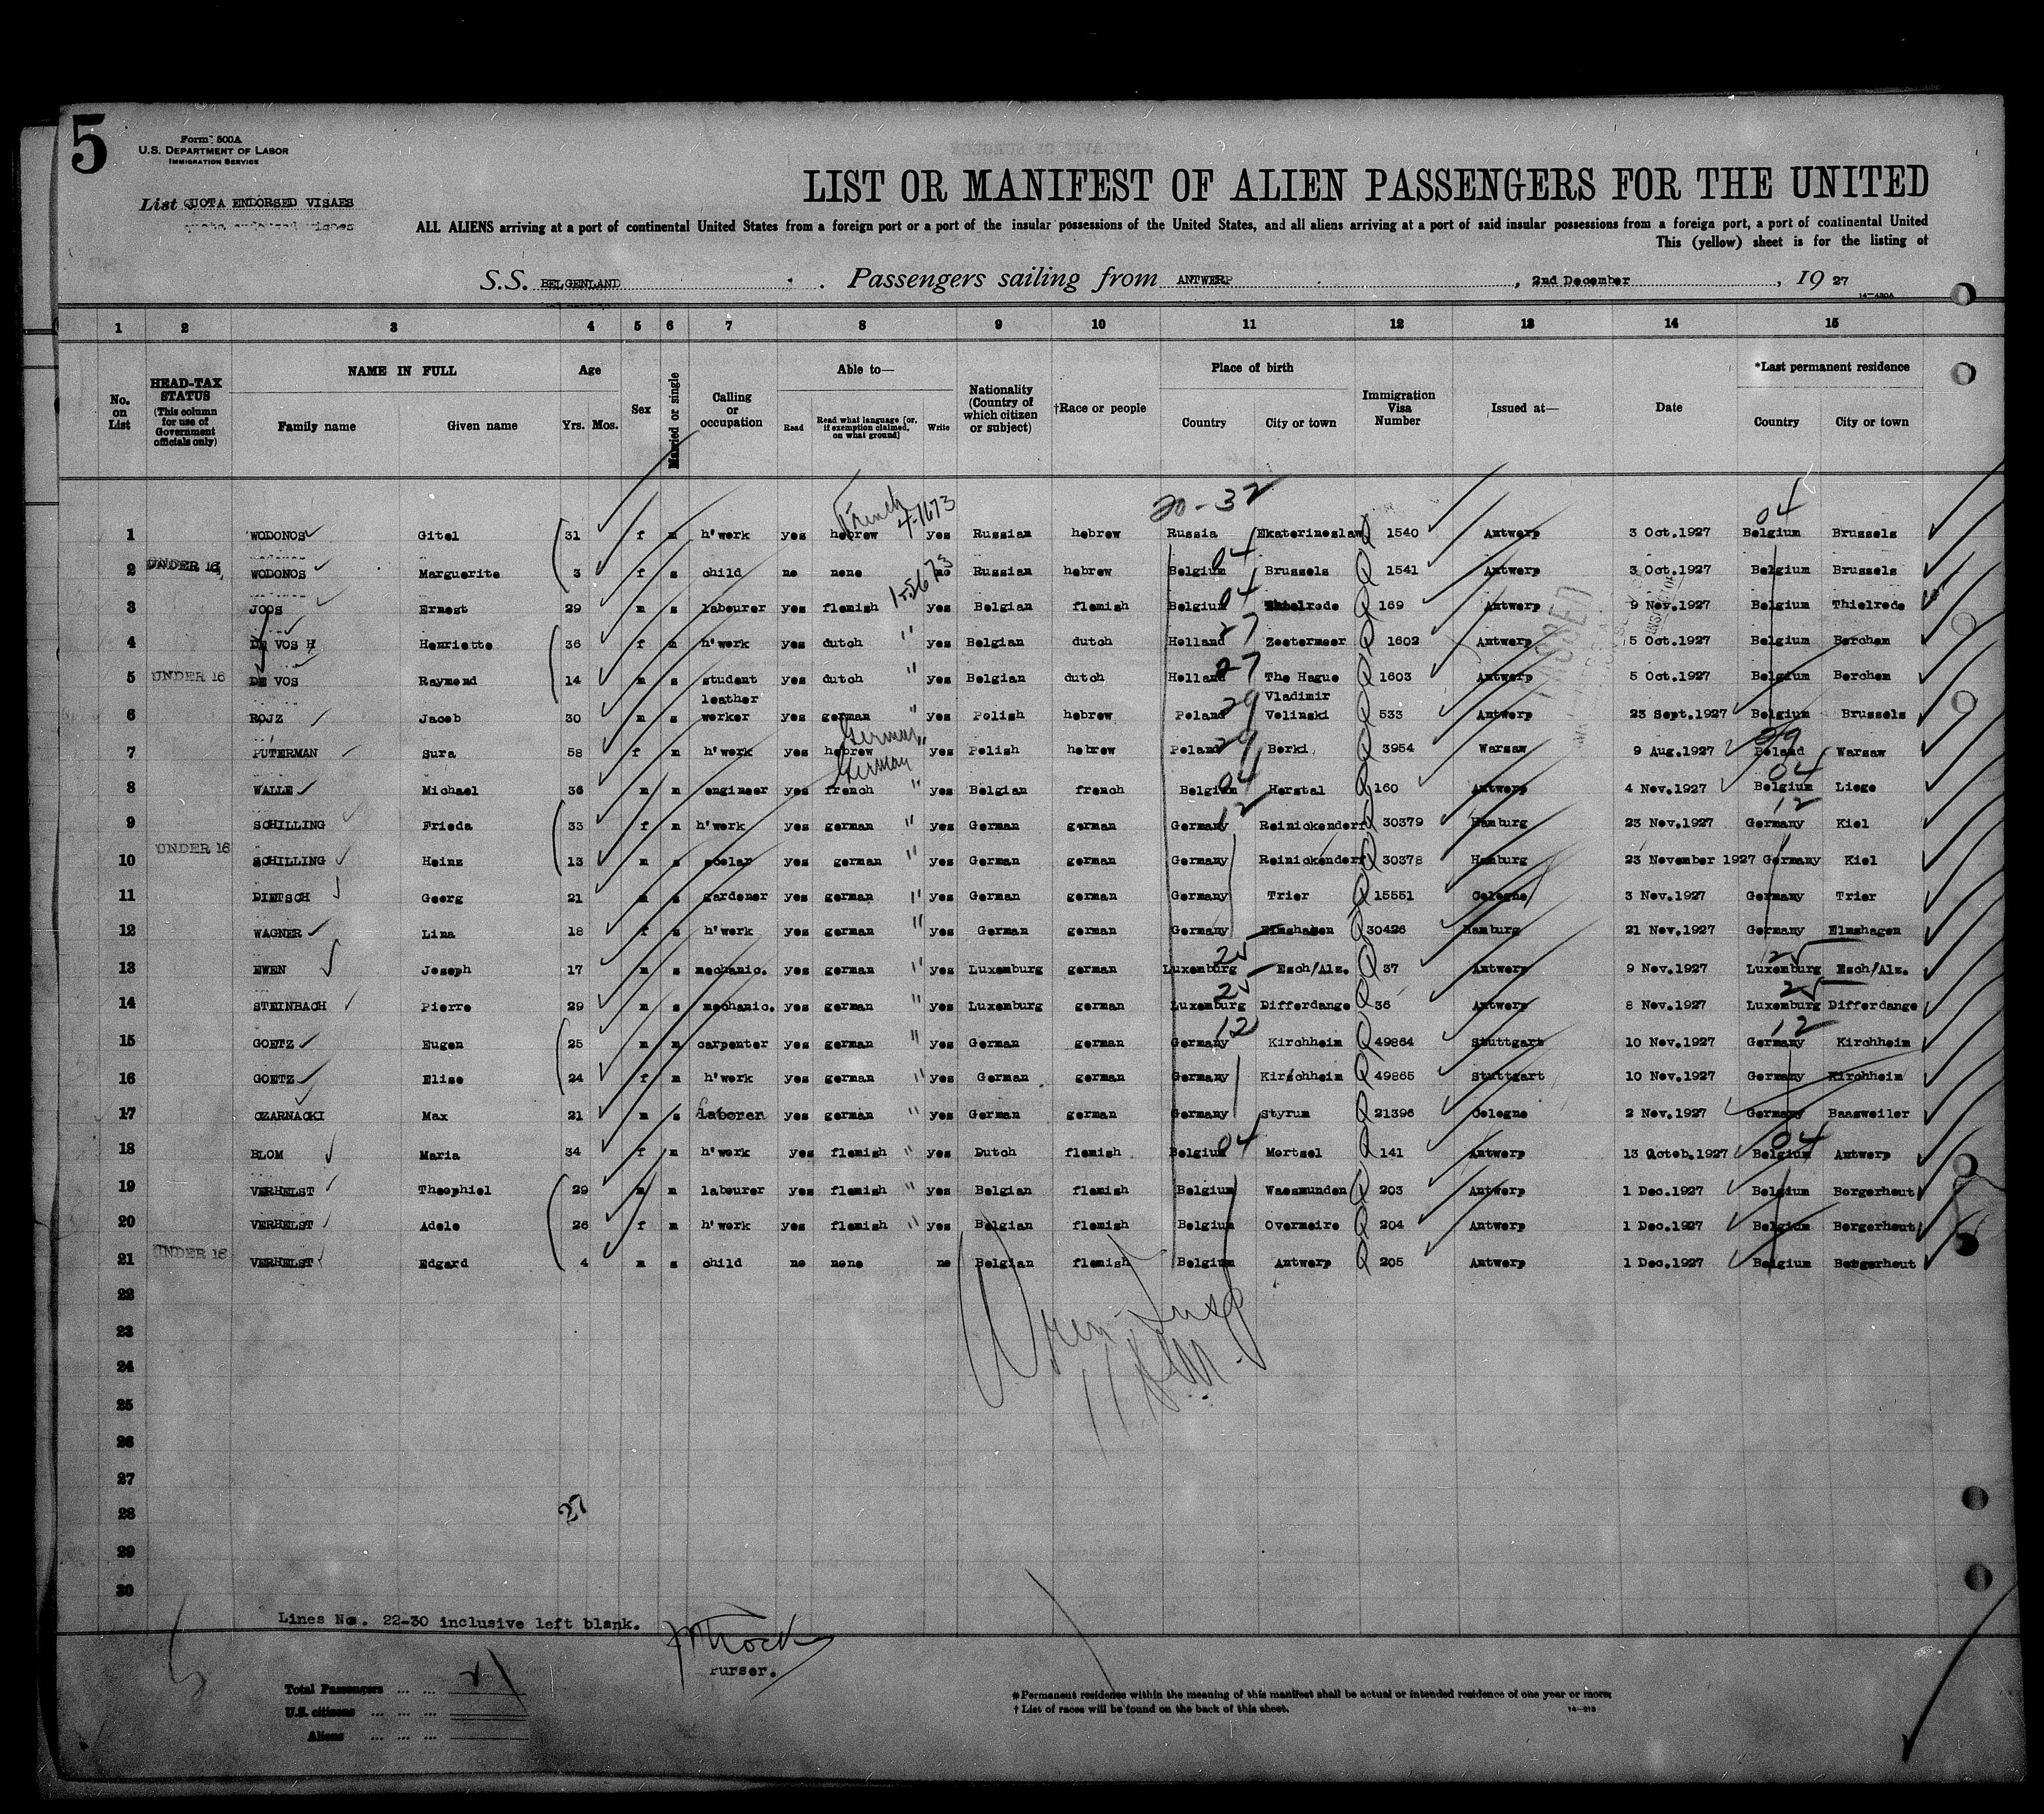 5
Form 500A
U.S. DEPARTMENT OF LABOR
IMMIGRATION SERVICE
List QUOTA ENDORSED VISAES
LIST OR MANIFEST OF ALIEN PASSENGERS FOR THE UNITED
ALL ALIENS arriving at a port of continental United States from a foreign port or a port of the insular possessions of the United States, and all aliens arriving at a port of said insular possessions from a foreign port, a port of continental United
This (yellow) sheet is for the listing of
S.S. BELGENLAND . Passengers sailing from ANTWERP , 2nd December , 19 27
14-430A
1 2 3 4 5 6 7 8 9 10 11 12 13 14 15
No. on List
HEAD-TAX STATUS (This column for use of Government officials only)
NAME IN FULL Family name Given name
Age Yrs. Mos.
Sex
Married or single
Calling or occupation
Able to— Read Read what language [or, if exemption claimed, on what ground] Write
Nationality (Country of which citizen or subject)
†Race or people
Place of birth Country City or town
Immigration Visa Number
Issued at—
Date
*Last permanent residence Country City or town
French 4-1673 20-32 04
1 WODONOS Gitel 31 f m h'work yes hebrew yes Russian hebrew Russia Ekaterinoslaw 1540 Antwerp 3 Oct.1927 Belgium Brussels
2 UNDER 16 WODONOS Marguerite 3 f s child no none no Russian hebrew Belgium 04 Brussels 1541 Antwerp 3 Oct.1927 Belgium Brussels
3 JOOS Ernest 29 m s labourer yes flemish yes Belgian flemish Belgium 04 Thielrode 169 Antwerp 9 Nov.1927 Belgium Thielrode
4 DE VOS H Henriette 36 f m h'work yes dutch " yes Belgian dutch Holland 27 Zoetermeer 1602 Antwerp 5 Oct.1927 Belgium Berchem
5 UNDER 16 DE VOS Raymond 14 m s student yes dutch " yes Belgian dutch Holland 27 The Hague 1603 Antwerp 5 Oct.1927 Belgium Berchem
6 ROJZ Jacob 30 m s leather worker yes german " yes Polish hebrew Poland 29 Vladimir Volinski 533 Antwerp 23 Sept.1927 Belgium Brussels
7 PUTERMAN Sura 58 f m h'work yes hebrew German " yes Polish hebrew Poland 29 Borki 3954 Warsaw 9 Aug.1927 Poland 29 Warsaw
8 WALLE Michael 36 m m engineer yes french German " yes Belgian french Belgium 04 Herstal 160 Antwerp 4 Nov.1927 Belgium 04 Liege
9 SCHILLING Frieda 33 f m h'work yes german " yes German german Germany 12 Reinickendorf 30379 Hamburg 23 Nov.1927 Germany 12 Kiel
10 UNDER 16 SCHILLING Heinz 13 m s scolar yes german " yes German german Germany Reinickendorf 30378 Hamburg 23 November 1927 Germany Kiel
11 DIETSCH Georg 21 m s gardener yes german " yes German german Germany Trier 15551 Cologne 3 Nov.1927 Germany Trier
12 WAGNER Lina 18 f s h'work yes german " yes German german Germany Elmshagen 30426 Hamburg 21 Nov.1927 Germany Elmshagen
13 EWEN Joseph 17 m s mechanic. yes german " yes Luxemburg german Luxemburg 25 Esch/Alz. 37 Antwerp 9 Nov.1927 Luxemburg 25 Esch/Alz.
14 STEINBACH Pierre 29 m s mechanic. yes german " yes Luxemburg german Luxemburg 25 Differdange 36 Antwerp 8 Nov.1927 Luxemburg 25 Differdange
15 GOETZ Eugen 25 m m carpenter yes german " yes German german Germany 12 Kirchheim 49864 Stuttgart 10 Nov.1927 Germany 12 Kirchheim
16 GOETZ Elise 24 f m h'work yes german " yes German german Germany Kirchheim 49865 Stuttgart 10 Nov.1927 Germany Kirchheim
17 CZARNACKI Max 21 m s laborer yes german " yes German german Germany Styrum 21396 Cologne 2 Nov.1927 Germany Baasweiler
18 BLOM Maria 34 f m h'work yes flemish " yes Dutch flemish Belgium 04 Mortsel 141 Antwerp 13 Octob.1927 Belgium 04 Antwerp
19 VERHELST Theophiel 29 m m labourer yes flemish " yes Belgian flemish Belgium Waesmunden 203 Antwerp 1 Dec.1927 Belgium Borgerhout
20 VERHELST Adele 26 f m h'work yes flemish " yes Belgian flemish Belgium Overmeire 204 Antwerp 1 Dec.1927 Belgium Borgerhout
21 UNDER 16 VERHELST Edgard 4 m s child no none no Belgian flemish Belgium Antwerp 205 Antwerp 1 Dec.1927 Belgium Borgerhout
22
23
24
25
26
27
28
29
30
Lines Nos. 22-30 inclusive left blank.
Purser.
Total Passengers ... ... 21
U.S. citizens ... ... ...
Aliens ... ... ...
*Permanent residence within the meaning of this manifest shall be actual or intended residence of one year or more.
† List of races will be found on the back of this sheet.
14-212